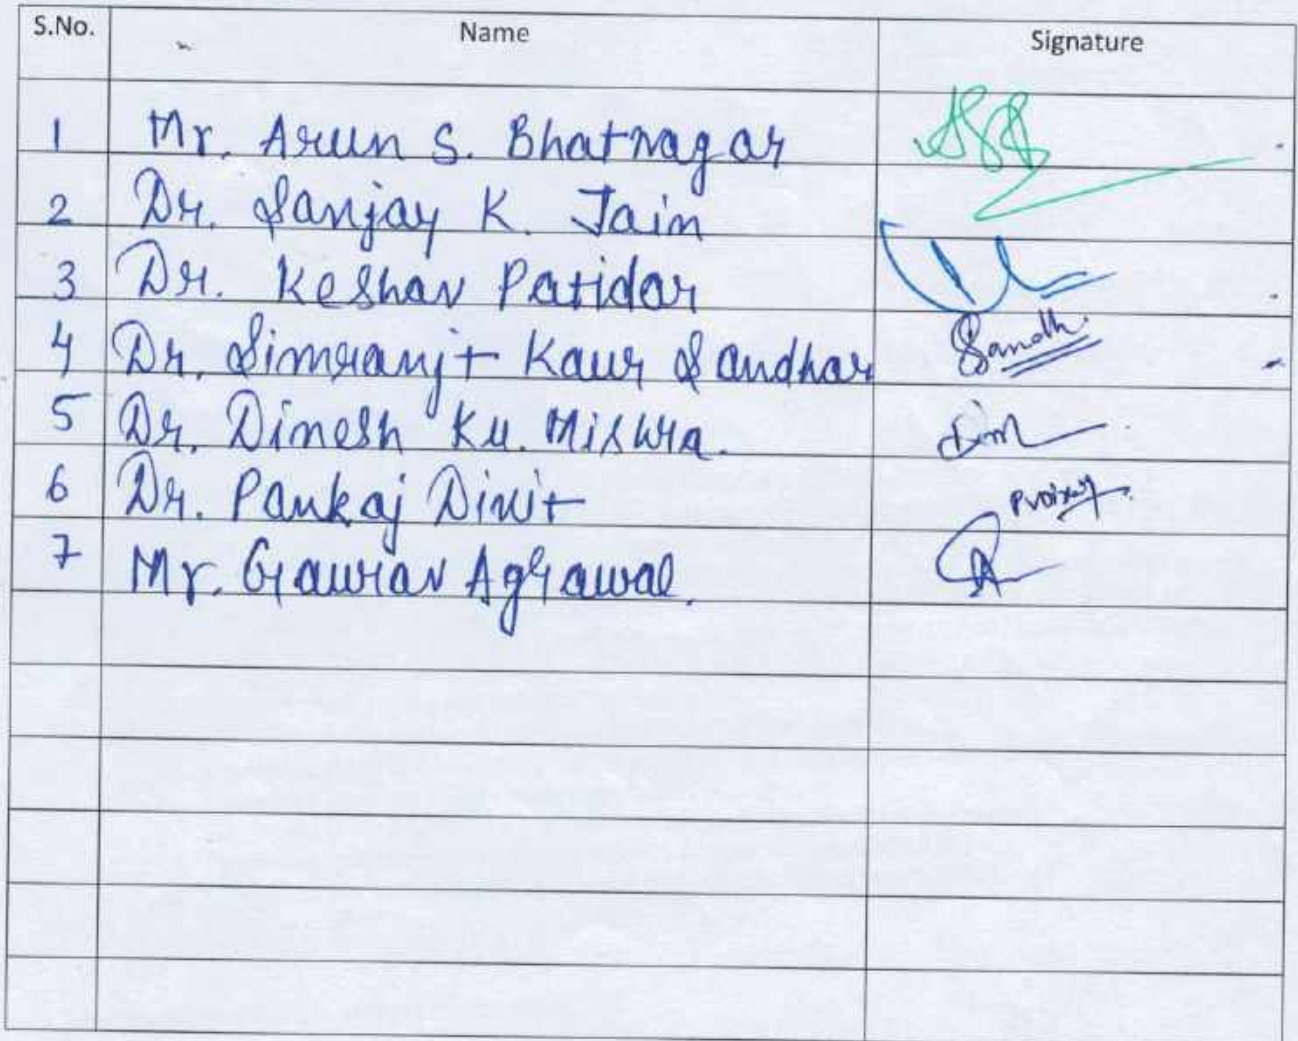 S.No. Name Signature
1 Mr. Arun S. Bhatnagar
2 Dr. Sanjay K. Jain
3 Dr. Keshav Patidar
4 Dr. Simranjit Kaur Sandhar Sandh
5 Dr. Dinesh Ku. Mishra. Dim
6 Dr. Pankaj Dixit
7 Mr. Gaurav Agrawal.